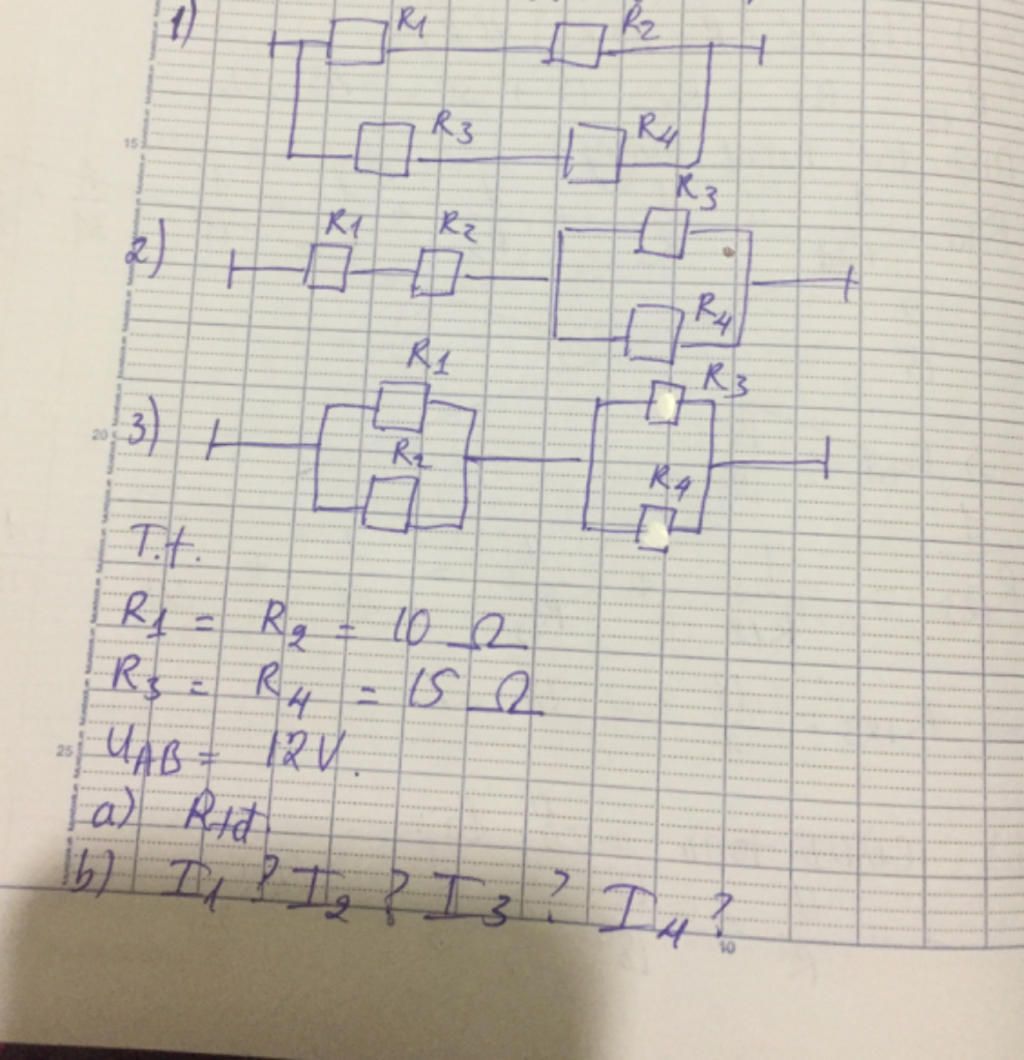 1) R1 R2
R3 R4
2) R1 R2 R3
R4
3) R1 R3
R2 R4
T.t.
R1 = R2 = 10 Ω
R3 = R4 = 15 Ω
UAB = 12V.
a) Rtđ
b) I1 ? I2 ? I3 ? I4 ?
15
20
25
10